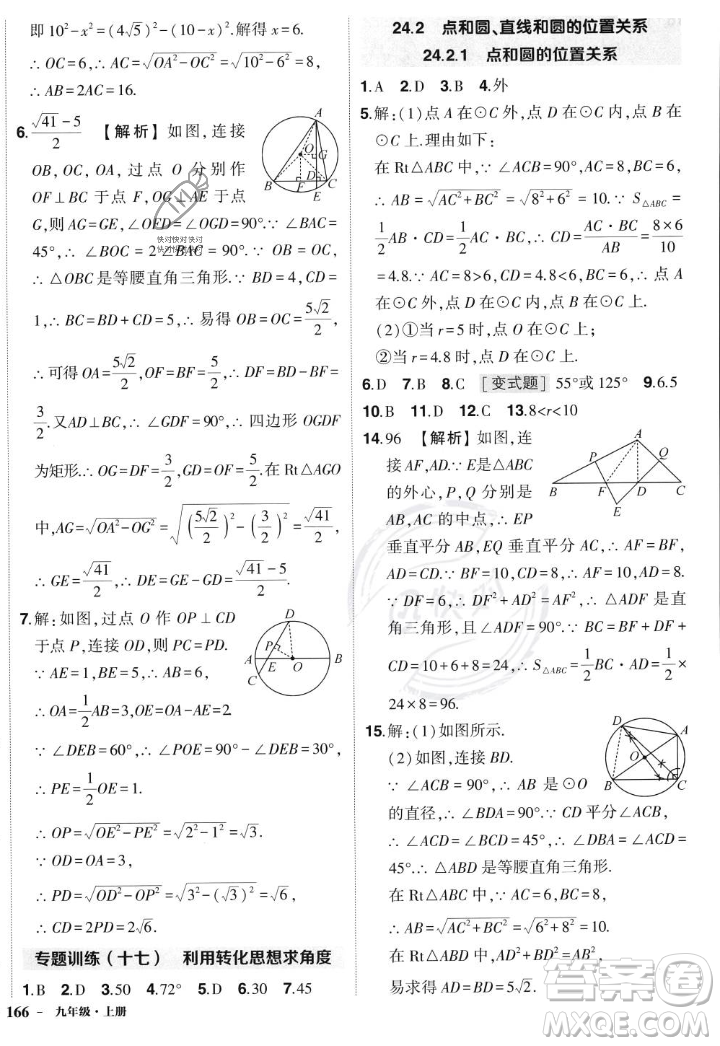 即 10²-x²=(4√5)²-(10-x)².解得 x=6.
∴ OC=6,∴ AC=√(OA²-OC²)=√(10²-6²)=8.
∴ AB=2AC=16.
6. (√41-5)/2 【解析】如图,连接
OB,OC,OA,过点 O 分别作
OF⊥BC 于点 F,OG⊥AE 于点
G,则 AG=GE,∠OED=∠OGD=90°.∵ ∠BAC=
45°,∴ ∠BOC=2∠BAC=90°.∵ OB=OC,
∴ △OBC 是等腰直角三角形.∵ BD=4,CD=
1,∴ BC=BD+CD=5,∴ 易得 OB=OC=5√2/2,
∴ 可得 OA=5√2/2,OF=BF=5/2,∴ DF=BD-BF=
3/2.又∵ AD⊥BC,∴ ∠GDF=90°,∴ 四边形 OGDF
为矩形.∴ OG=DF=3/2,GD=OF=5/2.在 Rt△AGO
中,AG=√(OA²-OG²)=√((5√2/2)²-(3/2)²)=√41/2,
∴ GE=√41/2,∴ DE=GE-GD=(√41-5)/2.
7.解:如图,过点 O 作 OP⊥CD
于点 P,连接 OD,则 PC=PD.
∵ AE=1,BE=5,∴ AB=6,
∴ OA=1/2AB=3,∴ OE=2.
∵ ∠DEB=60°,∴ ∠POE=90°-∠DEB=30°,
∴ PE=1/2OE=1.
∴ OP=√(OE²-PE²)=√(2²-1²)=√3.
∵ OD=OA=3,
∴ PD=√(OD²-OP²)=√(3²-(√3)²)=√6,
∴ CD=2PD=2√6.
专题训练(十七) 利用转化思想求角度
1.B 2.D 3.50 4.72° 5.D 6.30 7.45
166 - 九年级·上册
24.2 点和圆、直线和圆的位置关系
24.2.1 点和圆的位置关系
1.A 2.D 3.B 4.外
5.解:(1)点 A 在⊙C 外,点 D 在⊙C 内,点 B
在⊙C 上.理由如下:
在 Rt△ABC 中,∵ ∠C=90°,AC=8,BC=6,
∴ AB=√(AC²+BC²)=√(8²+6²)=10.∵ S△ABC=
1/2AB·CD=1/2AC·BC,∴ CD=(AC·BC)/AB=(8×6)/10
=4.8.∵ AC=8>6,CD=4.8<6,BC=6,∴ 点 A
在⊙C 外,点 D 在⊙C 内,点 B 在⊙C 上.
(2)①当 r=5 时,点 O 在⊙C 上;
②当 r=4.8 时,点 D 在⊙C 上.
6.D 7.B 8.C [变式题] 55°或 125° 9.6.5
10.B 11.D 12.C 13.8<r<10
14.96 【解析】如图,连
接 AF,AD.∵ E 是△ABC
的外心,P,Q 分别是
AB,AC 的中点,∴ EP
垂直平分 AB,EQ 垂直平分 AC,∴ AF=BF=10,
AD=CD=6.∵ DF=8,∴ DF²+AD²=AF²,∴ △ADF 是直
角三角形,∠ADF=90°.∵ BC=BF+DF+
CD=10+8+6=24,∴ S△ABC=1/2BC·AD=1/2×
24×8=96.
15.解:(1)如图所示.
(2)如图,连接 BD.
∵ ∠ACB=90°,∴ AB 是⊙O
的直径,∴ ∠BDA=90°.∵ CD 平分∠ACB,
∴ ∠ACD=∠BCD=45°,∴ ∠DBA=∠ACD=
45°.∴ △ABD 是等腰直角三角形.
在 Rt△ABC 中,∵ AC=6,BC=8,
∴ AB=√(AC²+BC²)=10.
在 Rt△ADB 中,∵
即所求⊙O